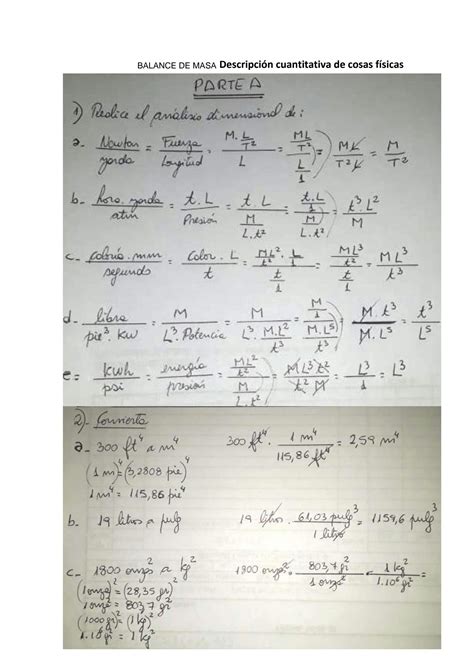 BALANCE DE MASA Descripción cuantitativa de cosas físicas
PARTE A
1) Realice el análisis dimensional de:
a- Newton/yarda = Fuerza/Longitud = (M.L/T²)/L = (ML/T²)/(L/1) = ML/T²L = M/T²
b- hora.yarda/atm = t.L/Presión = t.L/(M/L.t²) = (t.L/1)/(M/L.t²) = t³.L²/M
c- caloría.mm/segundo = calor.L/t = (ML²/t².L/1)/(t/1) = (ML³/t²)/(t/1) = ML³/t³
d- libra/pie³.kw = M/L³.Potencia = M/(L³.M.L²/t³) = (M/1)/(M.L⁵/t³) = M.t³/M.L⁵ = t³/L⁵
e= kwh/psi = energía/presión = (ML²/t²)/(M/L.t²) = ML³t²/t²M = L³/1 = L³
2)- Convierta
a- 300 ft⁴ a m⁴ 300 ft⁴. 1 m⁴/115,86 ft⁴ = 2,59 m⁴
(1 m)⁴=(3,2808 pie)⁴
1 m⁴ = 115,86 pie⁴
b. 19 litros a pulg³ 19 litros. 61,03 pulg³/1 litro = 1159,6 pulg³
c- 1800 onza² a kg² 1800 onza². 803,7 gr²/1 onza² . 1 kg²/1.10⁶ gr² =
(1 onza)² = (28,35 gr)²
1 onz² = 803,7 gr²
(1000 gr)² = (1 kg)²
1.10⁶ gr² = 1 kg²